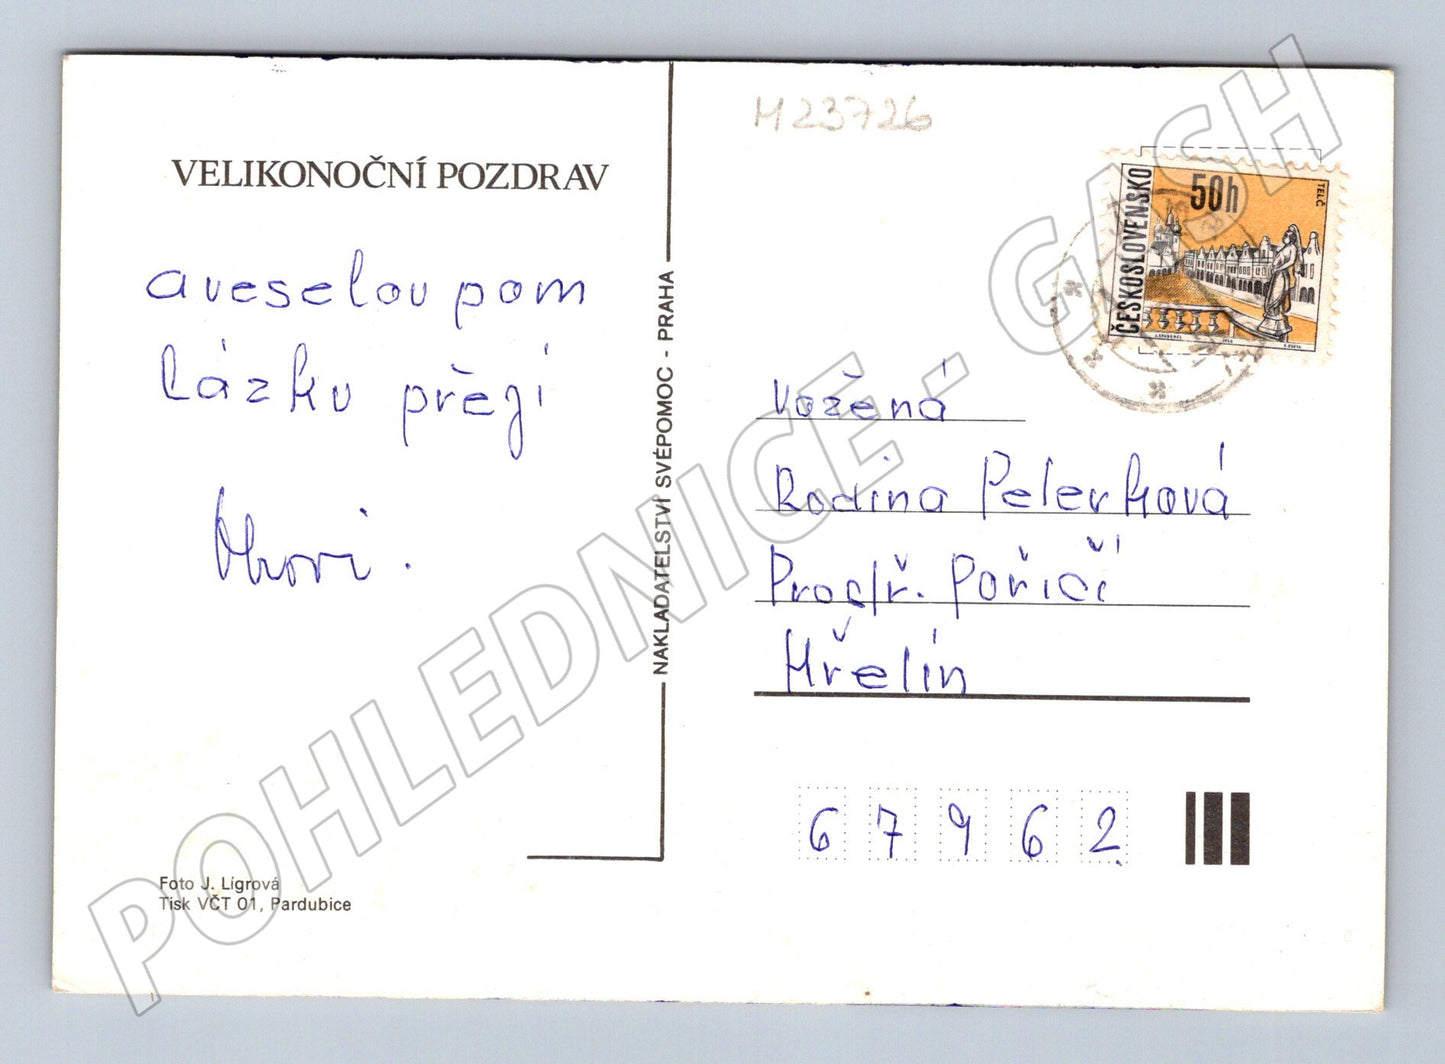 M 23726
VELIKONOČNÍ POZDRAV
a veselou pom
lázku přejí
NAKLADATELSTVÍ SVÉPOMOC - PRAHA
ČESKOSLOVENSKO
50h
TELČ
Vožená
Rodina Pelerková
Prostř. Poříčí
Křelín
67962
Foto J. Lígrová
Tisk VČT 01, Pardubice
POHLEDNICE - GASH